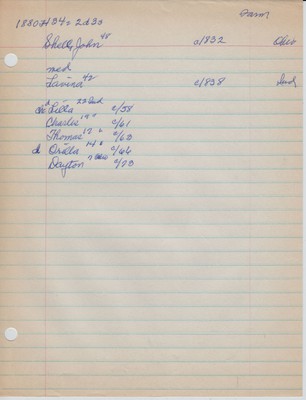 Farm
1880 H 34 2d 30
Shelly, John 48 c/1832 Ohio
med
Lavina 42 c/838 Ind
d Lilla 22 Ind c/58
Charles 19 " c/61
Thomas 17 " c/63
d Orilla 14 " c/66
Dayton 7 Ohio c/73